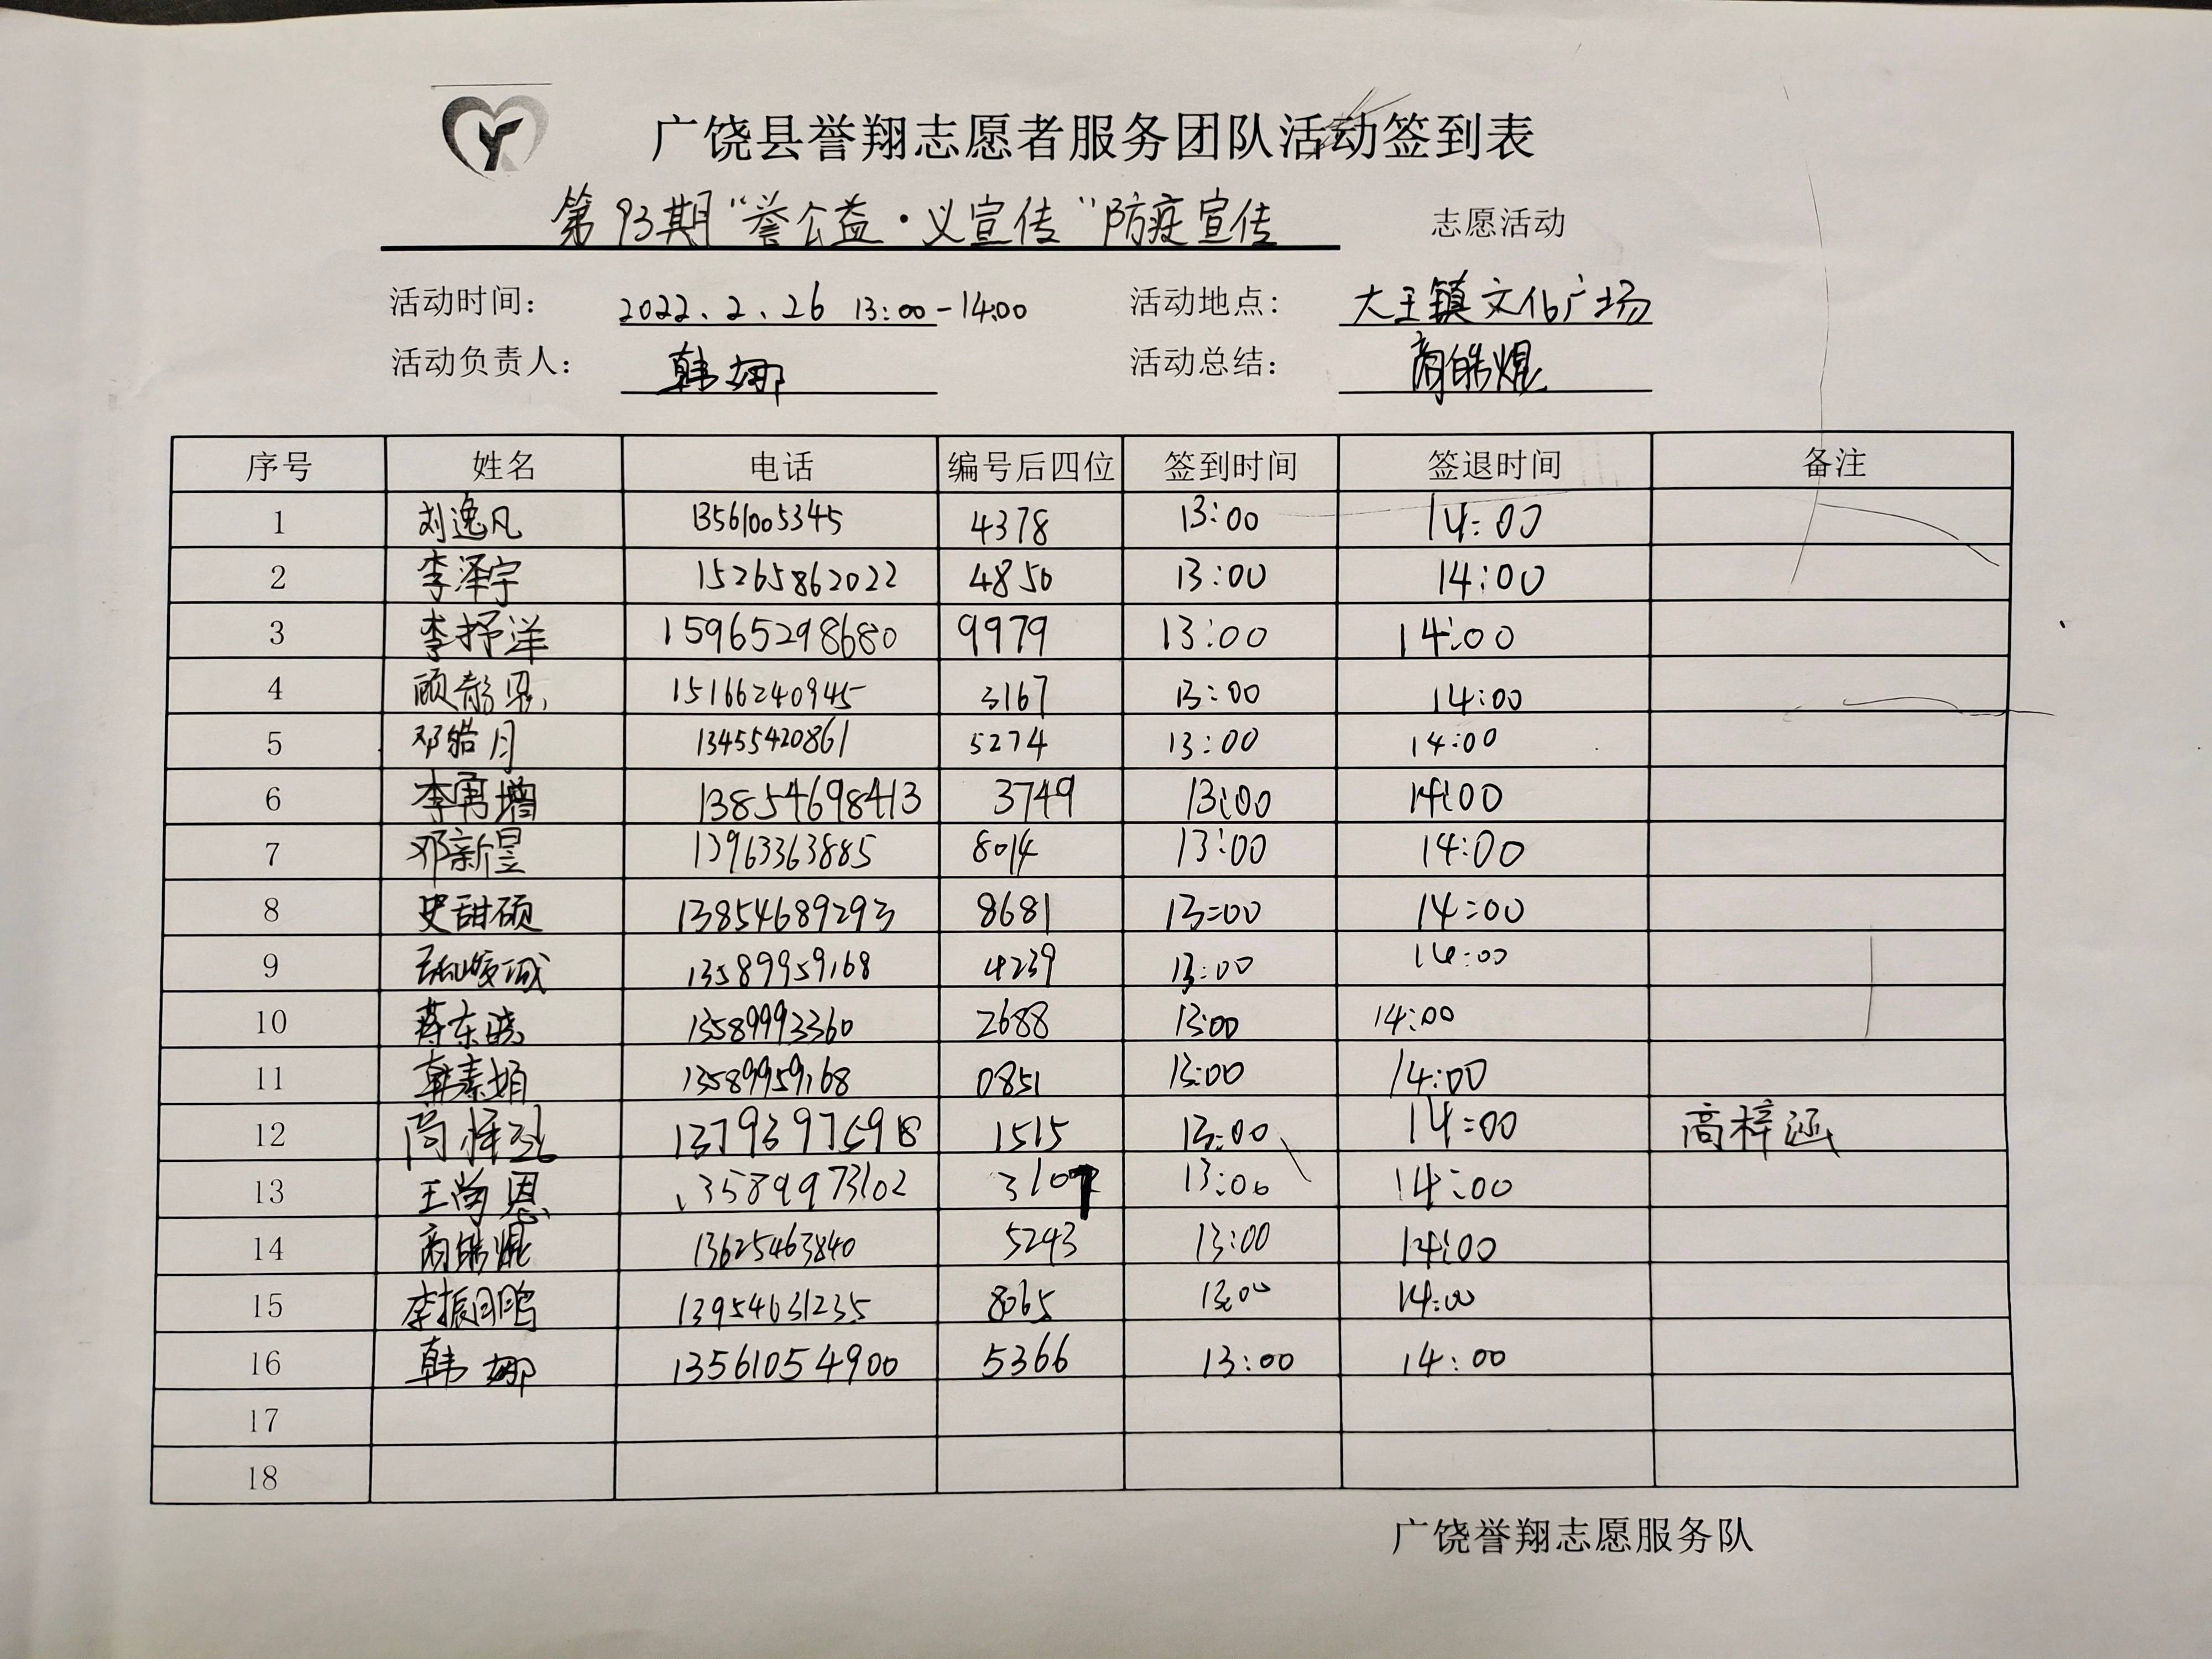 广饶县誉翔志愿者服务团队活动签到表
第93期“誉公益·义宣传”防疫宣传 志愿活动
活动时间： 2022.2.26 13:00-14:00 活动地点： 大王镇文化广场
活动负责人： 韩娜 活动总结： 商皓焜
序号 姓名 电话 编号后四位 签到时间 签退时间 备注
1 刘逸凡 13561005345 4378 13:00 14:00
2 李泽宇 15265862022 4850 13:00 14:00
3 李抒洋 15965298680 9979 13:00 14:00
4 15166240945 3167 13:00 14:00
5 邓皓月 13455420861 5274 13:00 14:00
6 13854698413 3749 13:00 14:00
7 邓新昱 13963363885 8014 13:00 14:00
8 史甜硕 13854689293 8681 13:00 14:00
9 13589959168 4239 13:00 14:00
10 蒋东晓 13589993360 2688 13:00 14:00
11 韩素娟 13589959168 0851 13:00 14:00
12 高梓涵 13793975918 1515 13:00 14:00 高梓涵
13 王尚恩 13589973102 3107 13:00 14:00
14 商皓焜 13625463840 5243 13:00 14:00
15 李振鹏 13954631235 8065 13:00 14:00
16 韩娜 13561054900 5366 13:00 14:00
17
18
广饶誉翔志愿服务队